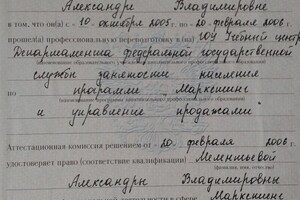 Александре Владимировне
в том, что он(а) с „10„ октября 2005 г. по „20„ февраля 2006 г.
прошел(а) профессиональную переподготовку в (на) ГОУ Учебный центр
Департамента федеральной государственной
службы занятости населения
по программе Маркетинг
и управление продажами
Аттестационная комиссия решением от „20„ февраля 2006 г.
удостоверяет право (соответствие квалификации) Мементьевой
(фамилия, имя, отчество)
Александры Владимировны
Маркетинг